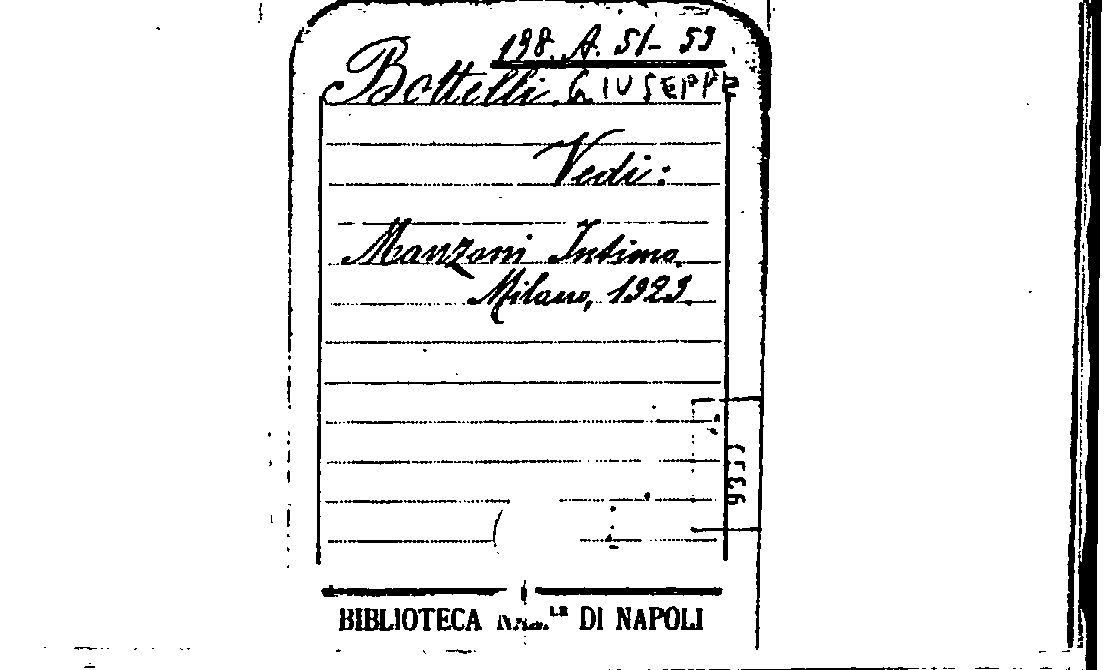 198. A. 51-53
Bottelli, GIUSEPPE
Vedi:
Manzoni Intimo.
Milano, 1923.
BIBLIOTECA NAZ.LE DI NAPOLI